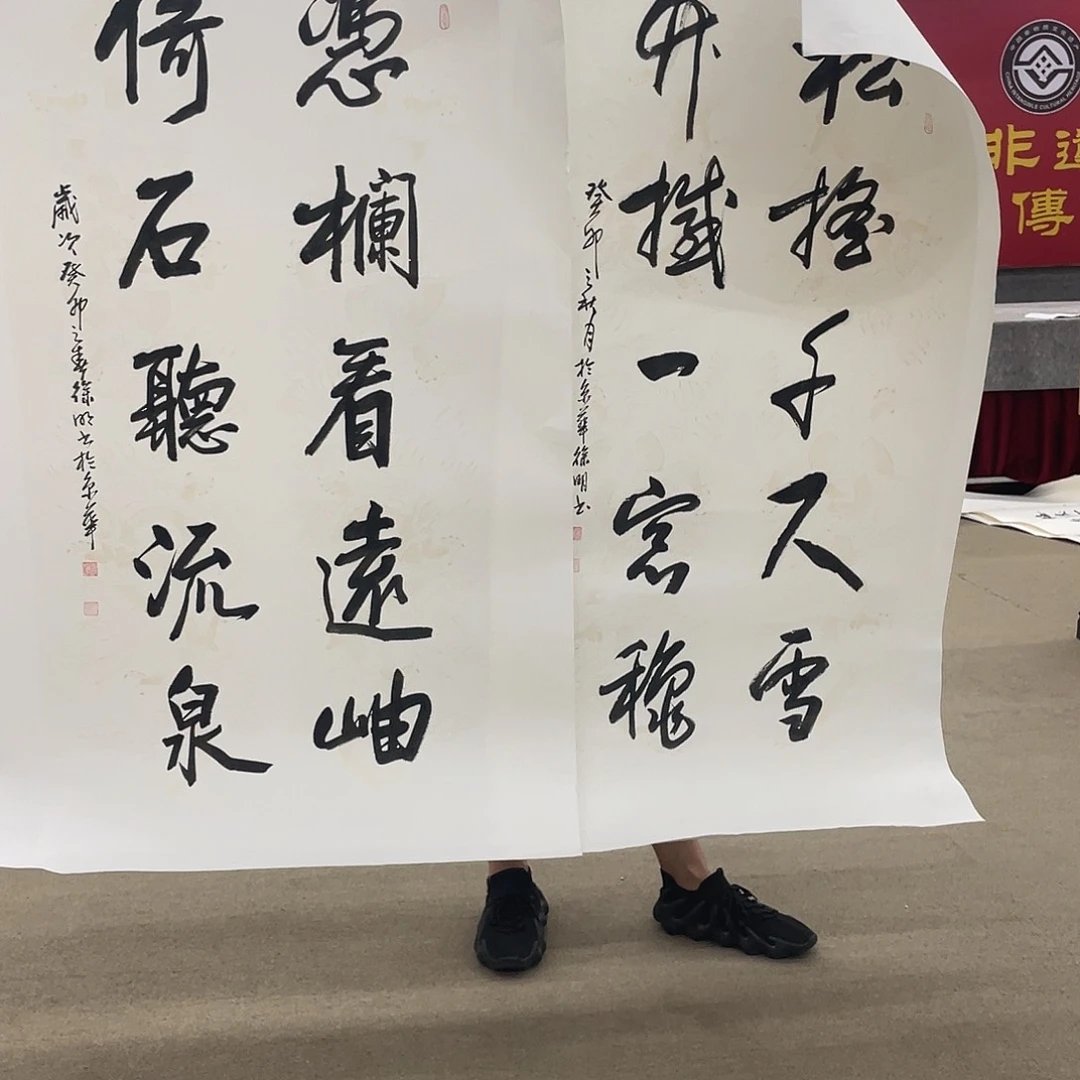 松搖千尺雪
竹撼一窓穐
癸卯之秋月於京華徐明書
憑欄看遠岫
倚石聽流泉
歲次癸卯之春徐明書於京華
非遗
傳